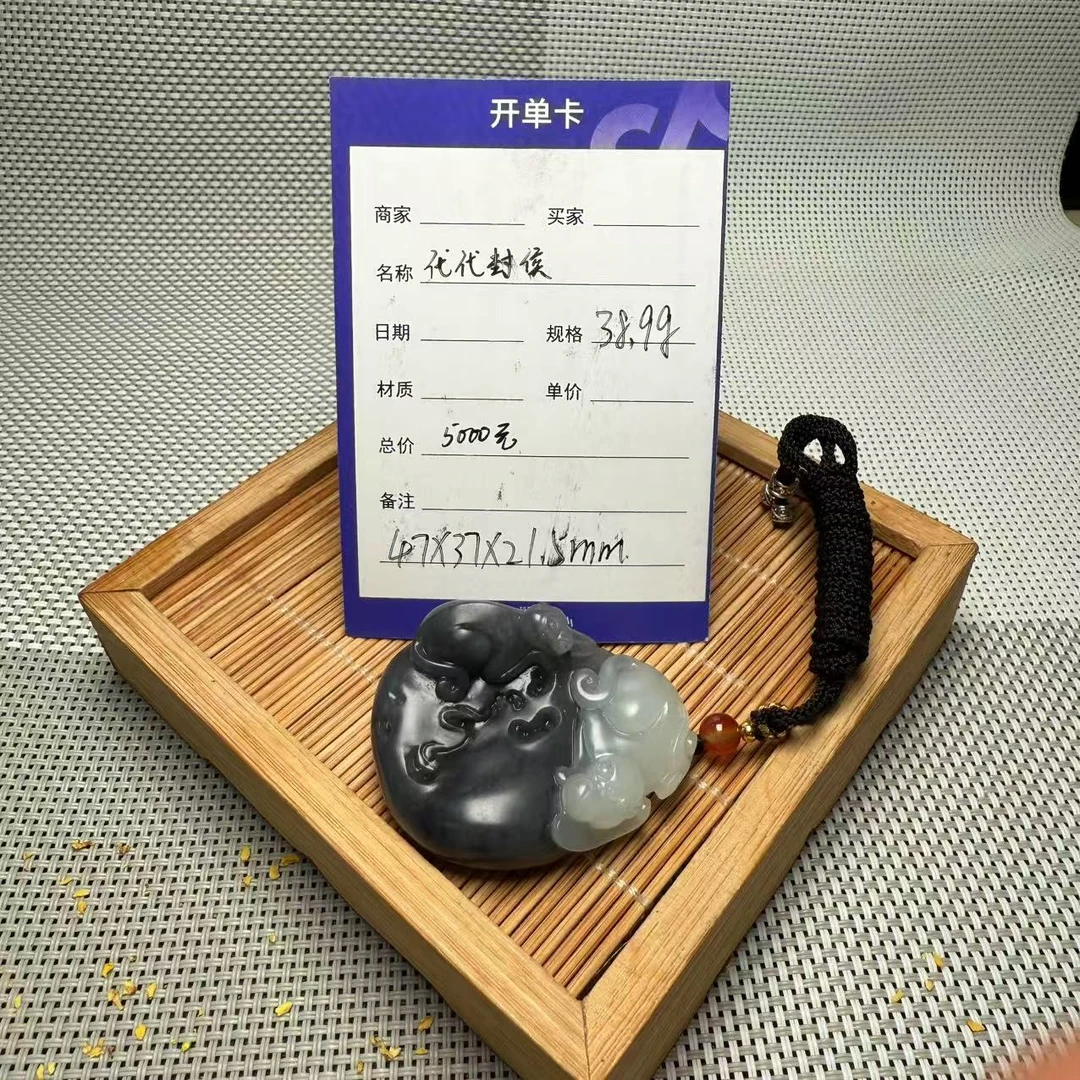 开单卡
商家 买家
名称 代代封侯
日期 规格 38.9g
材质 单价
总价 5000元
备注
47X37X21.5mm